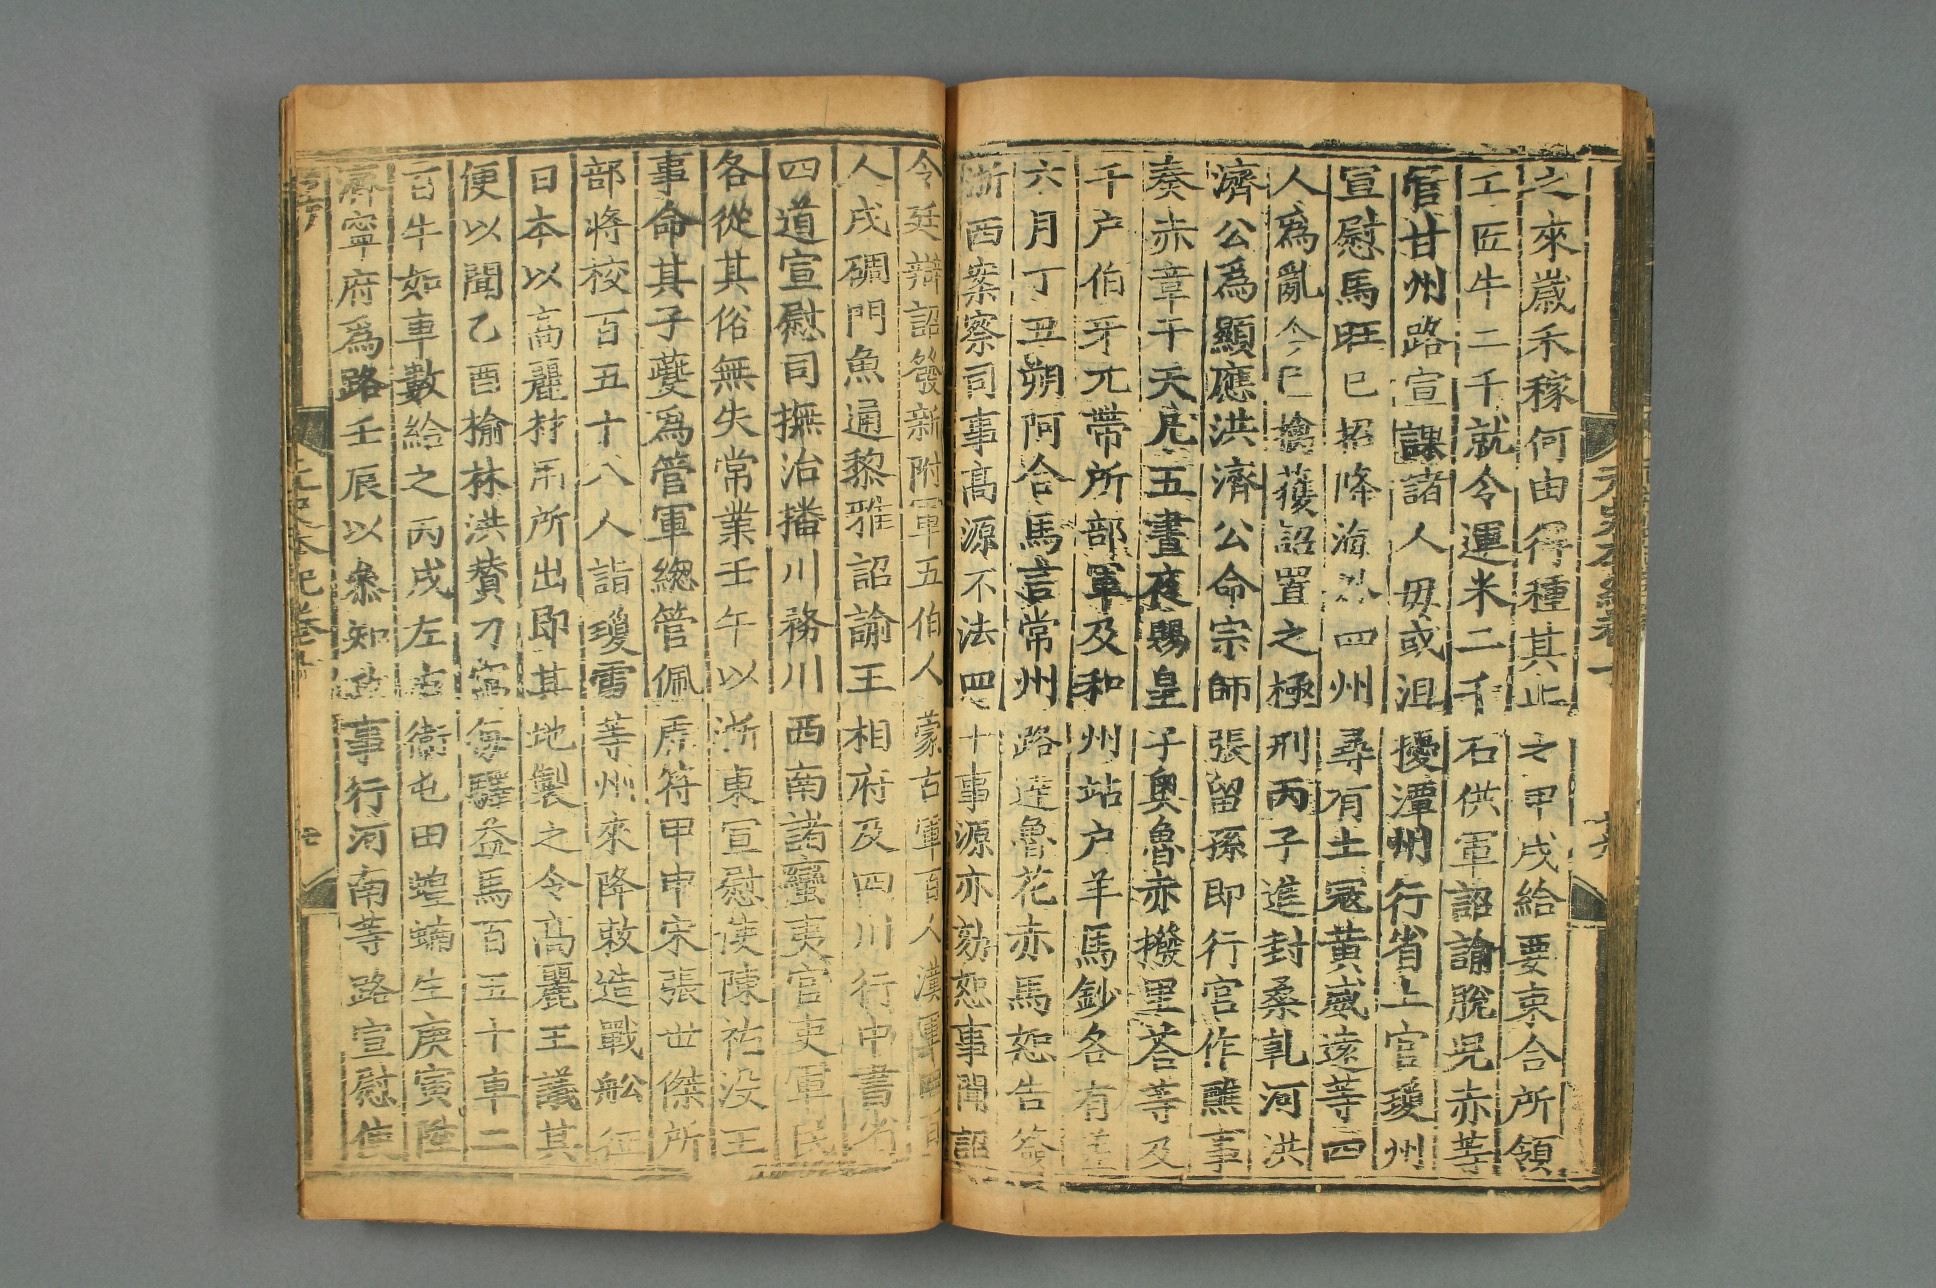 之來嵗禾稼何由得種其止之甲戌給要束合所領
工匠牛二千就令運米二千石供軍詔諭脫兒赤等
管甘州路宣課諸人毋或沮擾潭州行省上官瓊州
宣慰馬旺巳招降海外四州尋有土冦黄威遠等四
人爲亂今巳擒獲詔置之極刑丙子進封桑乹河洪
濟公爲顯應洪濟公命宗師張留孫即行宮作醮事
奏赤章于天凡五晝夜賜皇子奥魯赤撥里荅等及
千户伯牙兀帶所部軍及和州站户羊馬鈔各有差
六月丁丑朔阿合馬言常州路達魯花赤馬恕告簽
浙西案察司事高源不法四十事源亦劾恕事聞詔
令廷辯詔發新附軍五伯人蒙古軍百人漢軍四百
人戍碉門魚通黎雅詔諭王相府及四川行中書省
四道宣慰司撫治播川務川西南諸蠻夷官吏軍民
各從其俗無失常業壬午以浙東宣慰使陳祐没王
事命其子夔爲管軍緫管佩虎符甲申宋張世傑所
部將校百五十八人詣瓊雷等州來降敕造戰舩征
日本以高麗材用所出即其地製之令高麗王議其
便以聞乙酉榆林洪賛刀窩每驛益馬百五十車二
百牛如車數給之丙戌左右衛屯田蝗蝻生庚寅陞
濟寧府爲路壬辰以叅知政事行河南等路宣慰使